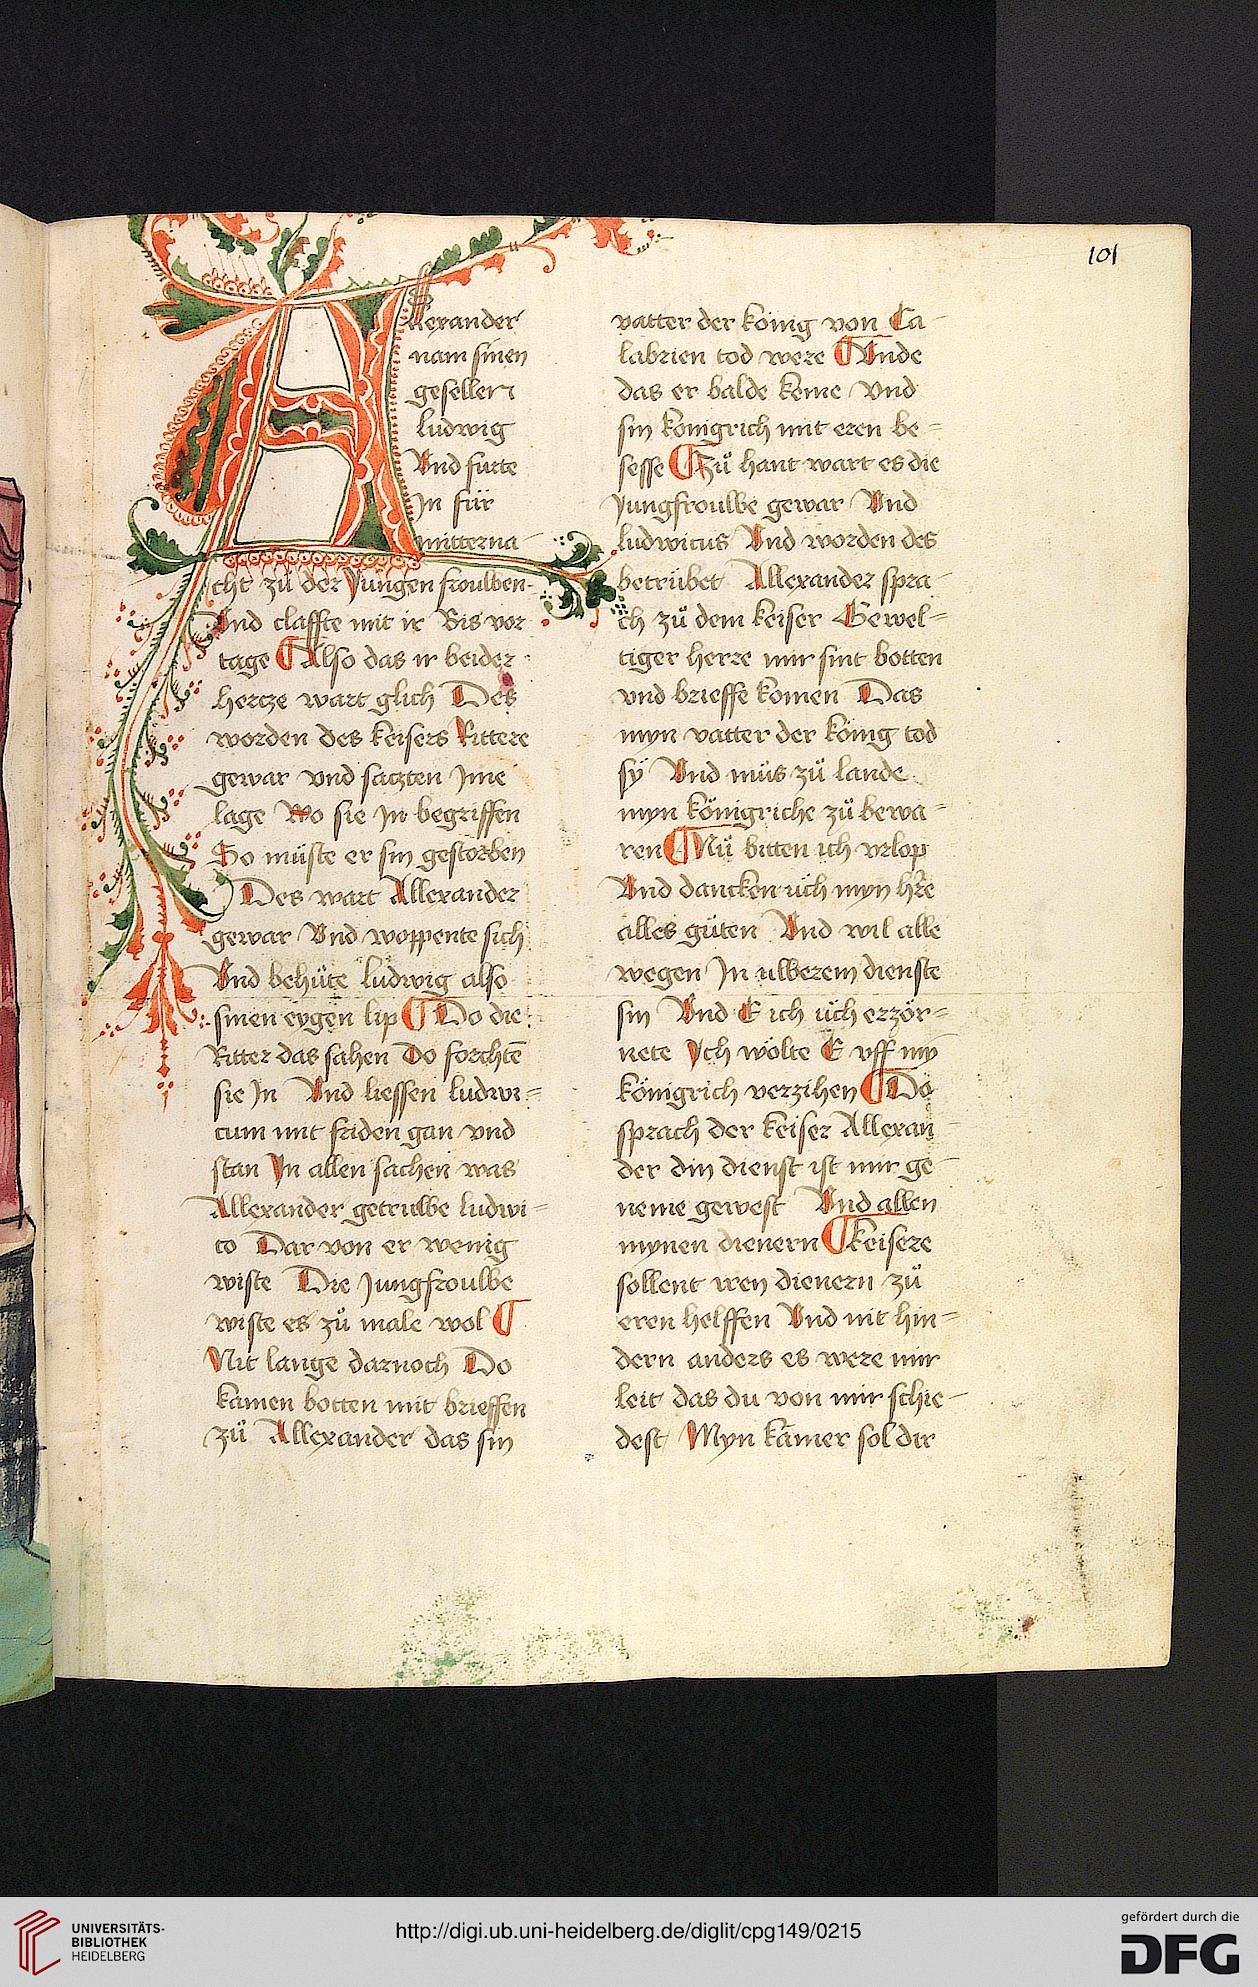 101
Allexander
nam sinen
gesellen
ludwig
Vnd furte
In für
mitterna-
cht zü der Jungen frouwen
Vnd claffte mit ir Bis vor
tage Also das ir beider
hertze wart glich Des
worden des keisers Rittere
gewar vnd satzten Jme
lage Wo sie In begriffen
So müste er sin gestorben
Des wart Allexander
gewar Vnd woppente sich
Vnd behüte ludwig also
sinen eygen lip Do die
Ritter das sahen Do forchtē
sie In Vnd liessen ludwi=
cum mit friden gan vnd
stan In allen sachen was
Allexander getruwe ludwi=
co Dar von er wenig
wiste Die Jungfrouwe
wiste es zů male wol
Nit lange darnoch Do
kamen botten mit brieffen
zů Allexander das sin
vatter der konig von Ca-
labrien tod were Vnde
das er balde keme Vnd
sin konigrich mit eren be=
sesse Zů hant wart es die
Jungfrouwe gewar Vnd
ludwicus Vnd worden des
betrübet Allexander spra-
ch zů dem keiser Gewel=
tiger herre mir sint botten
vnd brieffe komen Das
myn vatter der könig tod
sÿ Vnd müs zů lande
myn königriche zů bewa=
ren Nů bitten ich vrlop
Vnd dancken üch myn hr̄e
alles güten Vnd wil alle
wegen In uwerem dienste
sin Vnd E ich üch erzör=
nete Ich wölte E vff mȳ
königrich verzihen Do
sprach der keiser Allexan-
der din dienst ist mir ge-
neme gewest Vnd allen
mynen dienern keisere
sollent iren dienern zů
eren helffen Vnd nit hin=
dern anders es were mir
leit das du von mir schie-
dest Myn kamer sol dir
UNIVERSITÄTS-
BIBLIOTHEK
HEIDELBERG
http://digi.ub.uni-heidelberg.de/diglit/cpg149/0215
gefördert durch die
DFG